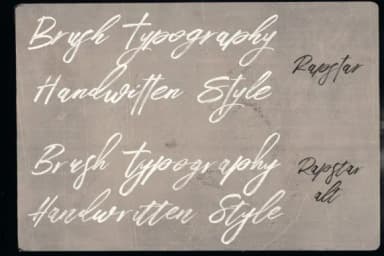 Brush Typography
Handwitten Style
Rapstar
Brush Typography
Handwritten Style
Rapstar
alt